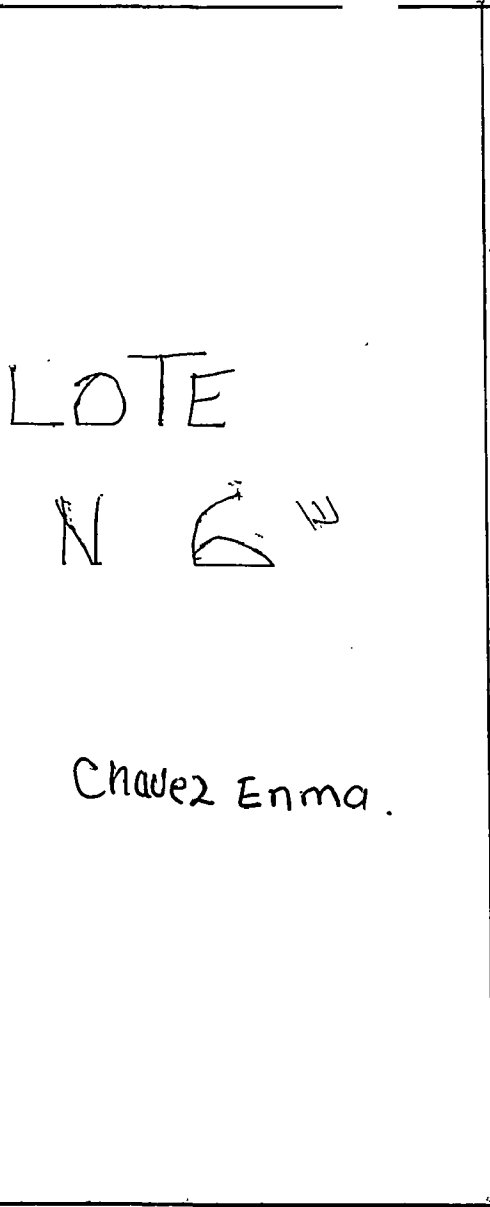 LOTE
N 6
Chavez Enma.